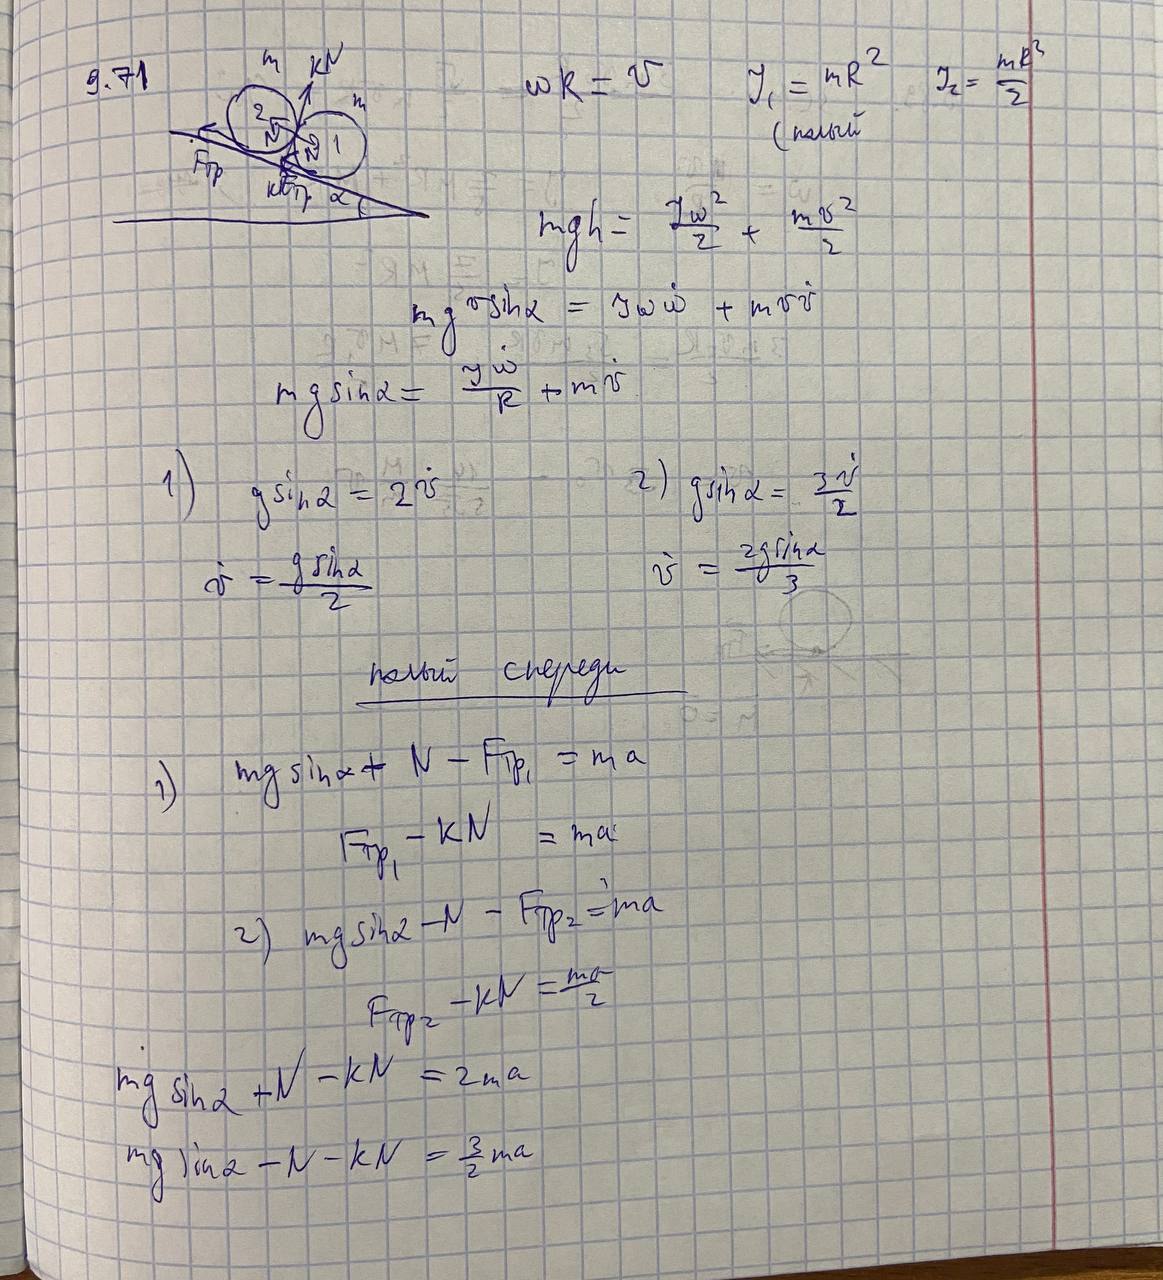 9.71
m kN
m
2
1
N N
Fтр
kN Fтр α
ωR = v J₁ = mR² J₂ = mR²/2
(полый
mgh = Jω²/2 + mv²/2
mg v sinα = Jωω̇ + mvv̇
mg sinα = Jω̇/R + mv̇
1) g sinα = 2v̇ 2) g sinα = 3v̇/2
v̇ = g sinα/2 v̇ = 2g sinα/3
полый спереди
1) mg sinα + N − Fтр₁ = ma
Fтр₁ − kN = ma
2) mg sinα − N − Fтр₂ = ma
Fтр₂ − kN = ma/2
mg sinα + N − kN = 2ma
mg sinα − N − kN = 3/2 ma